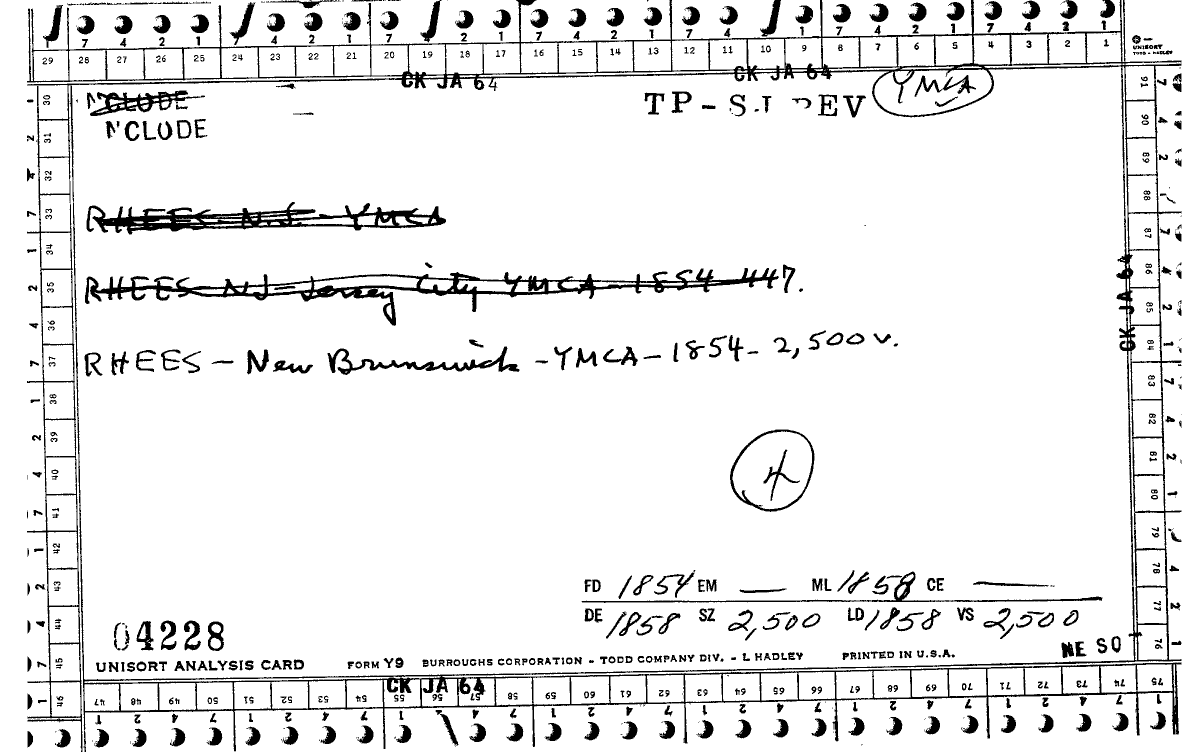 7 4 2 1 7 4 2 1 7 4 2 1 7 4 2 1 7 4 2 1 7 4 2 1
29 28 27 26 25 24 23 22 21 20 19 18 17 16 15 14 13 12 11 10 9 8 7 6 5 4 3 2 1
UNISORT
TODD - HADLEY
CK JA 64 CK JA 64
NCLUDE TP-SJ DEV YMCA
NCLUDE
RHEES - N.J. - YMCA
RHEES NJ - Jersey City YMCA - 1854 447.
RHEES - New Brunswick - YMCA - 1854 - 2,500 v.
4
CK JA 64
FD 1854 EM — ML 1858 CE —
DE 1858 SZ 2,500 LD 1858 VS 2,500
04228
NE SO
UNISORT ANALYSIS CARD FORM Y9 BURROUGHS CORPORATION - TODD COMPANY DIV. - L HADLEY PRINTED IN U.S.A.
CK JA 64
30 31 32 33 34 35 36 37 38 39 40 41 42 43 44 45 46
47 48 49 50 51 52 53 54 55 56 57 58 59 60 61 62 63 64 65 66 67 68 69 70 71 72 73 74 75
76 77 78 79 80 81 82 83 84 85 86 87 88 89 90 91